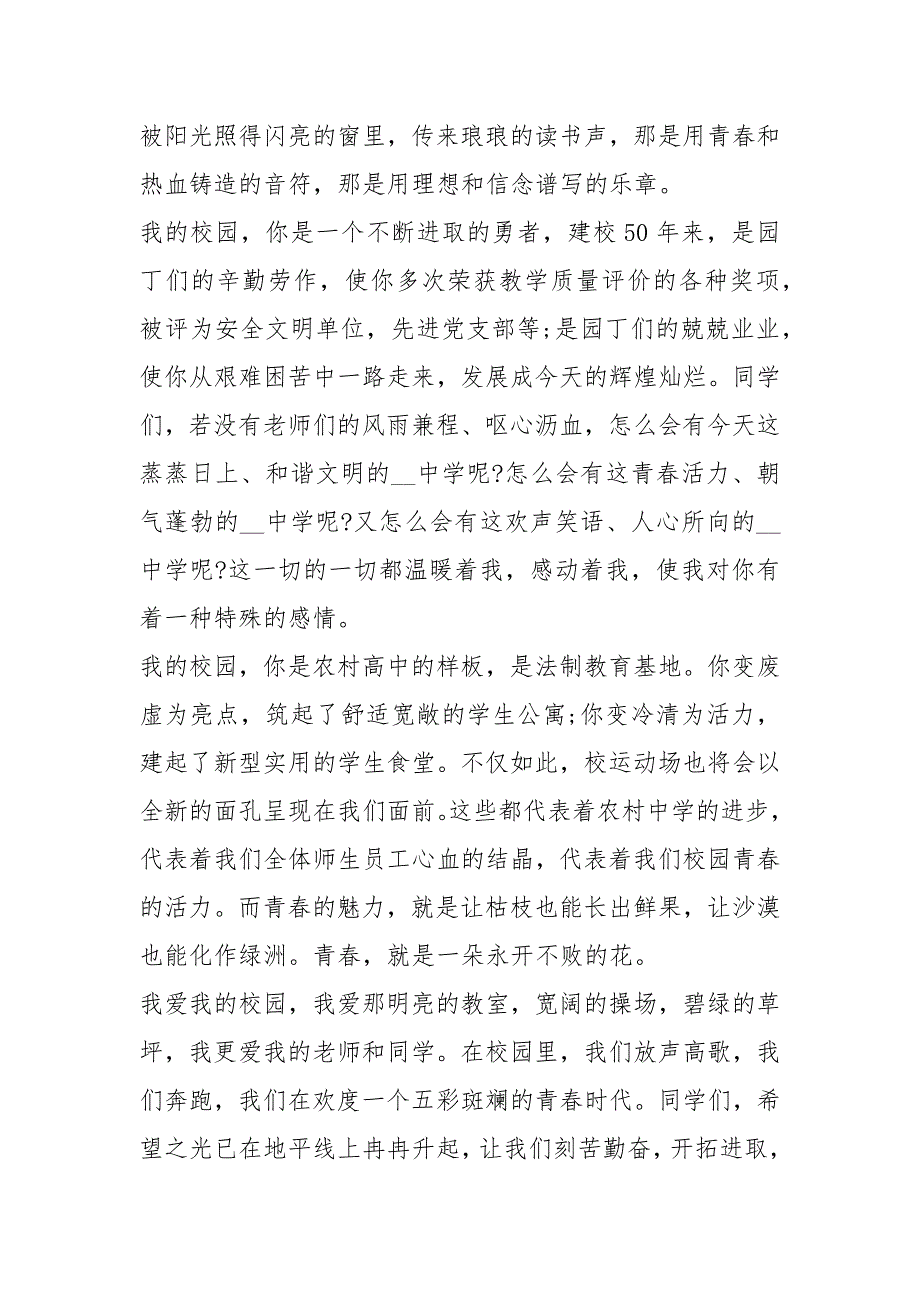 被阳光照得闪亮的窗里，传来琅琅的读书声，那是用青春和
热血铸造的音符，那是用理想和信念谱写的乐章。
我的校园，你是一个不断进取的勇者，建校 50 年来，是园
丁们的辛勤劳作，使你多次荣获教学质量评价的各种奖项，
被评为安全文明单位，先进党支部等;是园丁们的兢兢业业，
使你从艰难困苦中一路走来，发展成今天的辉煌灿烂。同学
们，若没有老师们的风雨兼程、呕心沥血，怎么会有今天这
蒸蒸日上、和谐文明的__中学呢?怎么会有这青春活力、朝
气蓬勃的__中学呢?又怎么会有这欢声笑语、人心所向的__
中学呢?这一切的一切都温暖着我，感动着我，使我对你有
着一种特殊的感情。
我的校园，你是农村高中的样板，是法制教育基地。你变废
虚为亮点，筑起了舒适宽敞的学生公寓;你变冷清为活力，
建起了新型实用的学生食堂。不仅如此，校运动场也将会以
全新的面孔呈现在我们面前。这些都代表着农村中学的进步，
代表着我们全体师生员工心血的结晶，代表着我们校园青春
的活力。而青春的魅力，就是让枯枝也能长出鲜果，让沙漠
也能化作绿洲。青春，就是一朵永开不败的花。
我爱我的校园，我爱那明亮的教室，宽阔的操场，碧绿的草
坪，我更爱我的老师和同学。在校园里，我们放声高歌，我
们奔跑，我们在欢度一个五彩斑斓的青春时代。同学们，希
望之光已在地平线上冉冉升起，让我们刻苦勤奋，开拓进取，